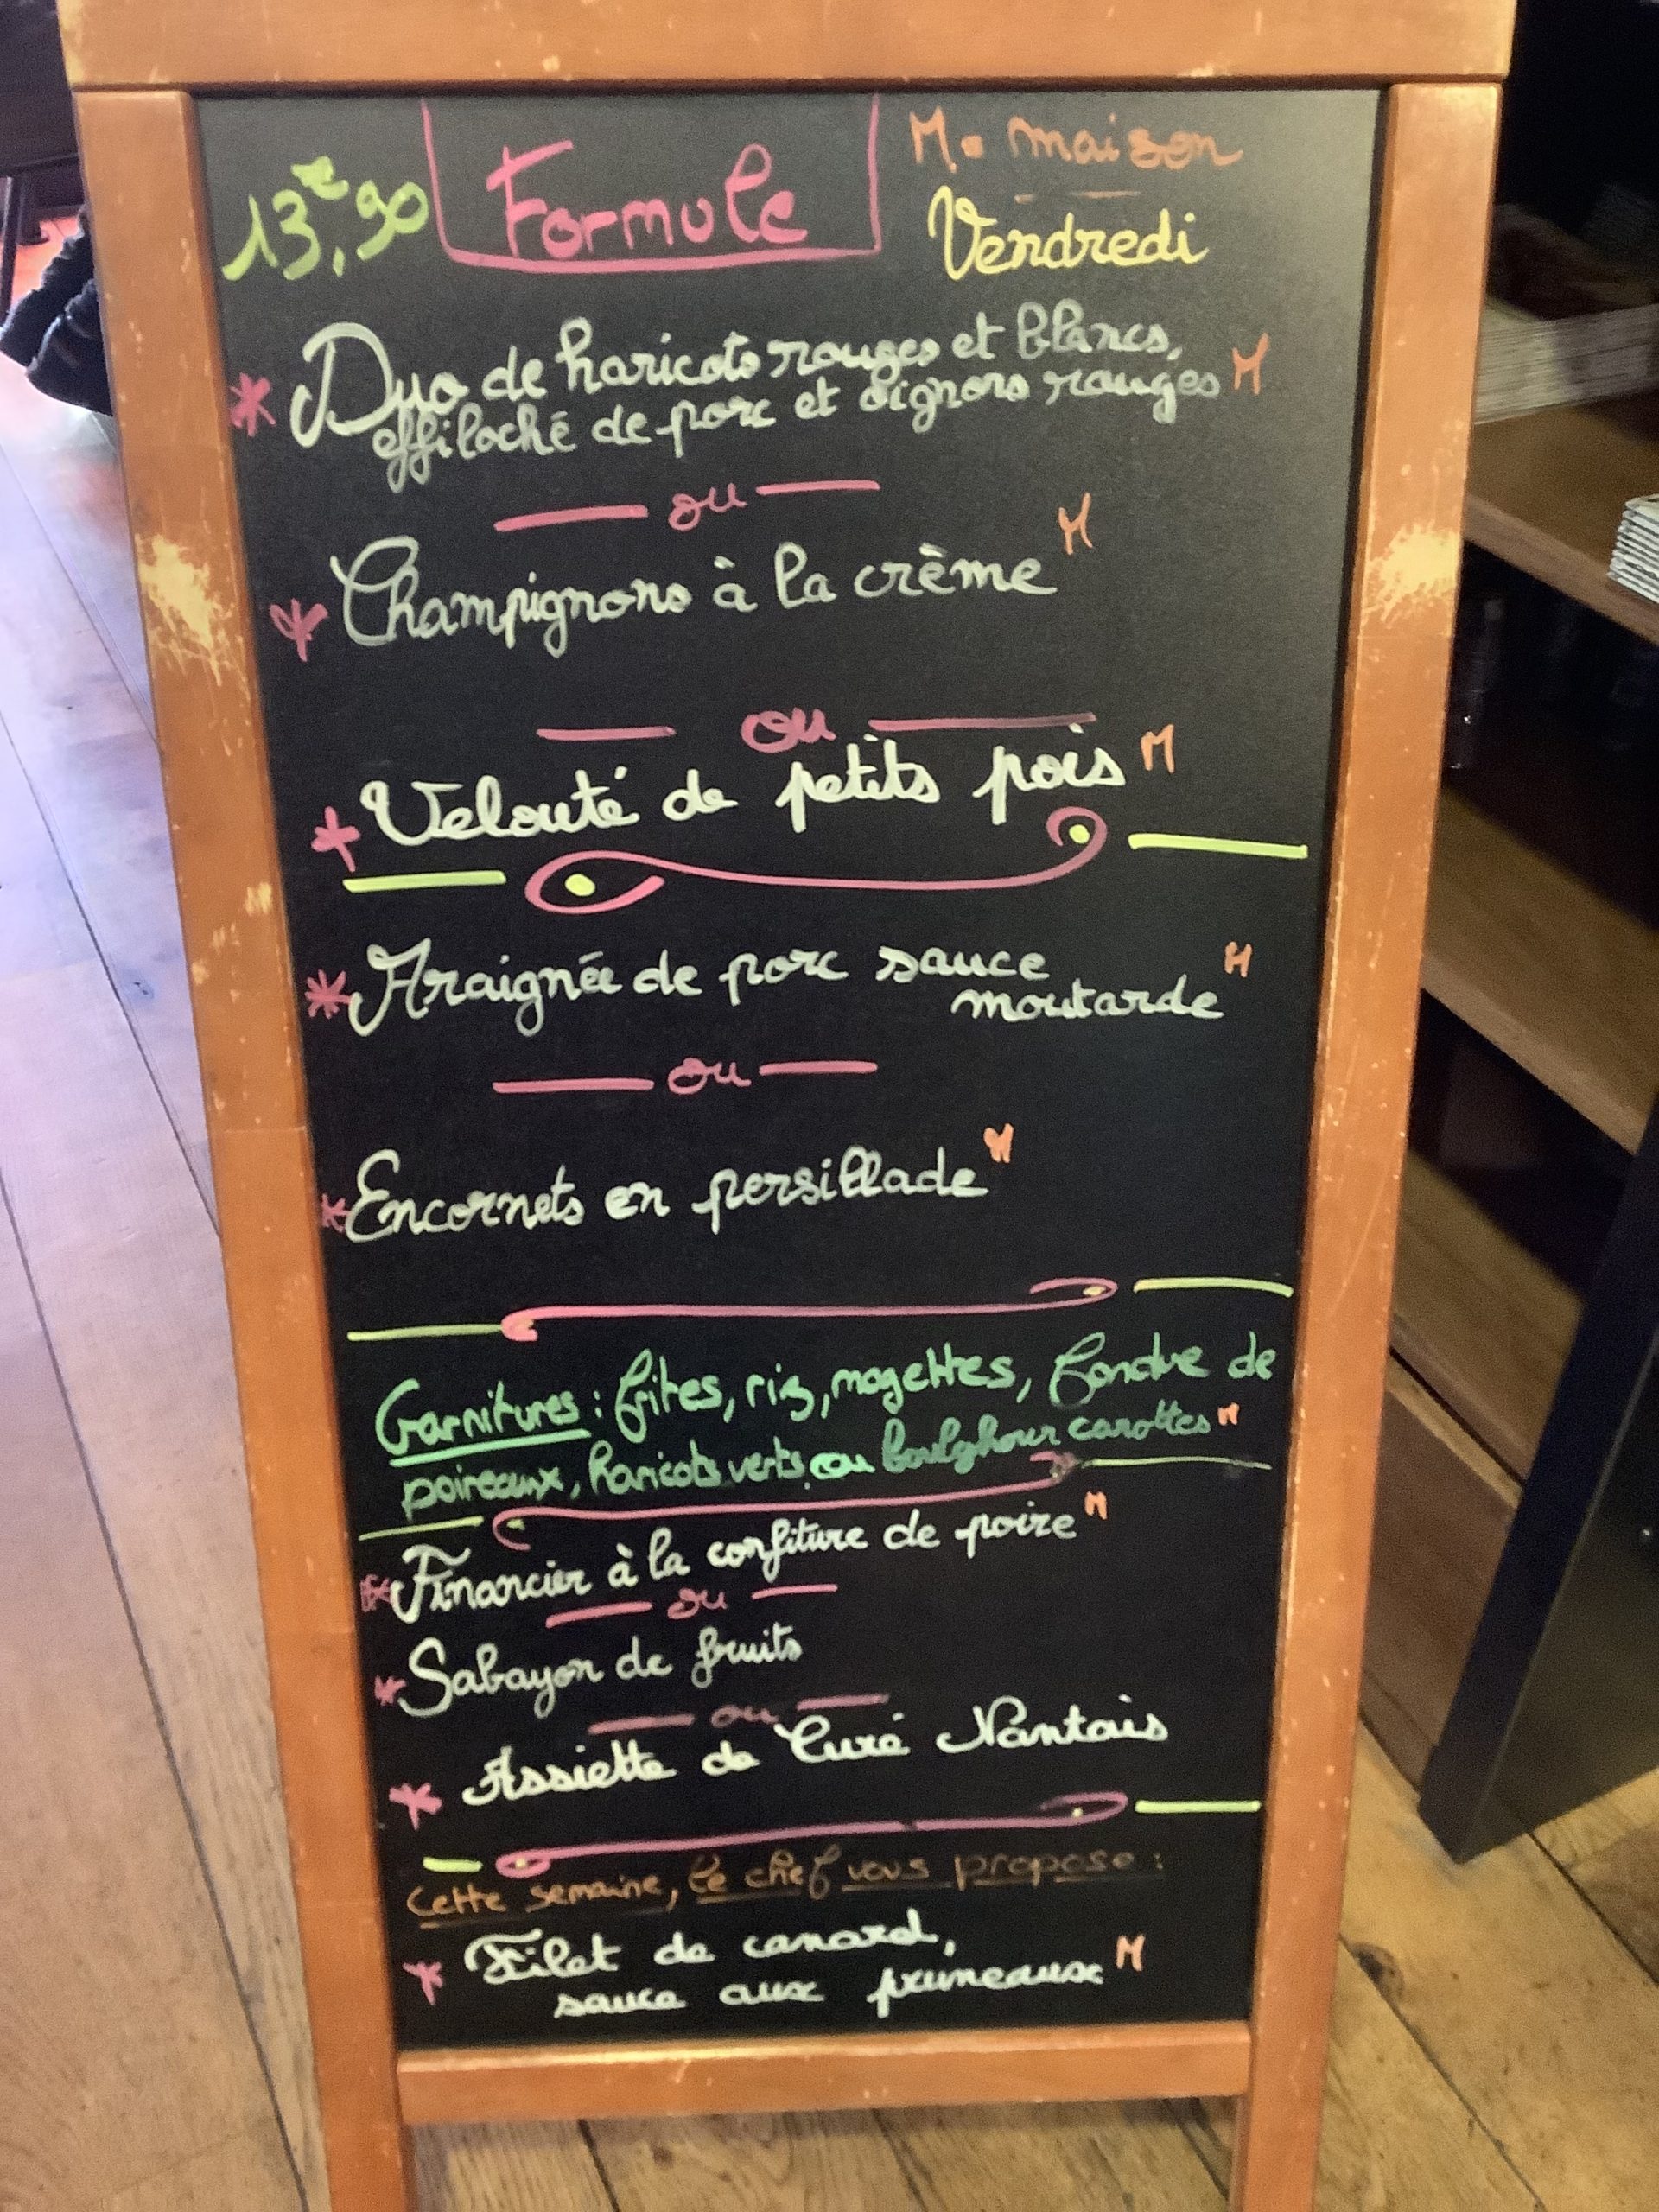 13€,90 Formule M = maison
Vendredi
* Duo de haricots rouges et blancs,
effiloché de porc et oignons rouges M
ou
* Champignons à la crème M
ou
* Velouté de petits pois M
* Araignée de porc sauce
moutarde M
ou
* Encornets en persillade M
Garnitures : frites, riz, mogettes, fondue de
poireaux, haricots verts ou boulghour carottes M
* Financier à la confiture de poire M
ou
* Sabayon de fruits
ou
* Assiette de Curé Nantais
Cette semaine, le chef vous propose :
* Filet de canard,
sauce aux pruneaux M